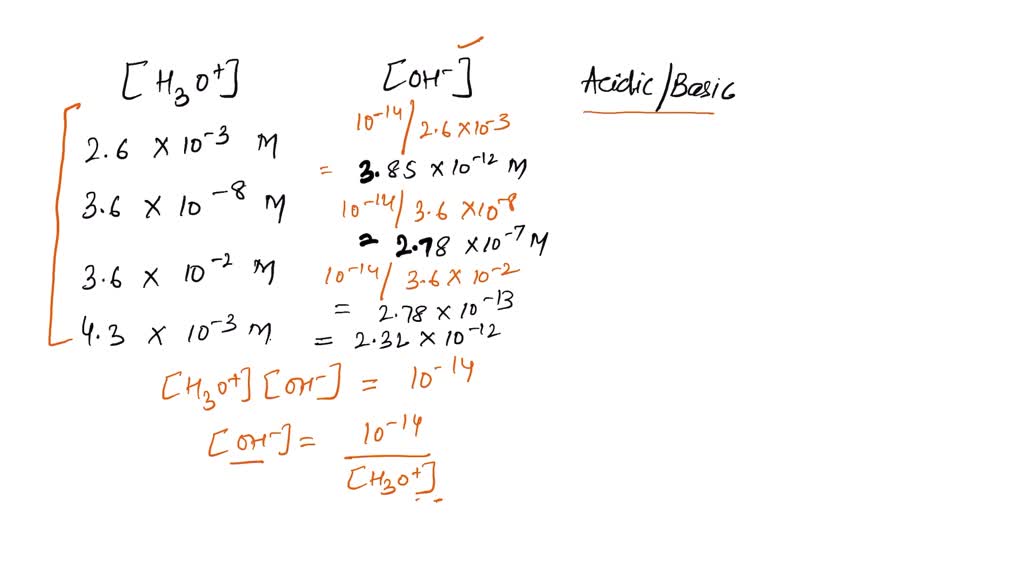 [H₃O⁺] [OH⁻] Acidic/Basic
10⁻¹⁴/2.6 × 10⁻³
2.6 × 10⁻³ M = 3.85 × 10⁻¹² M
3.6 × 10⁻⁸ M 10⁻¹⁴/3.6 × 10⁻⁸
= 2.78 × 10⁻⁷ M
3.6 × 10⁻² M 10⁻¹⁴/3.6 × 10⁻²
= 2.78 × 10⁻¹³
4.3 × 10⁻³ M = 2.32 × 10⁻¹²
[H₃O⁺][OH⁻] = 10⁻¹⁴
[OH⁻] = 10⁻¹⁴
[H₃O⁺]